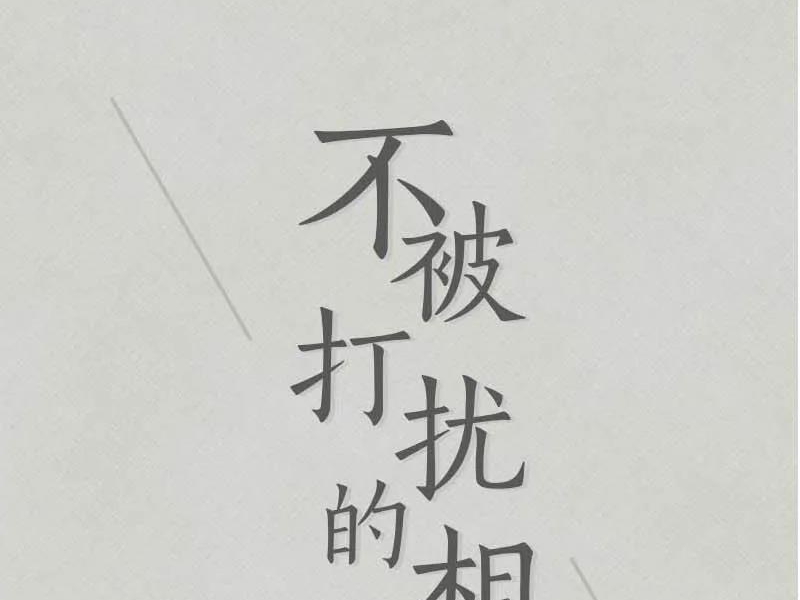 不被打扰的相